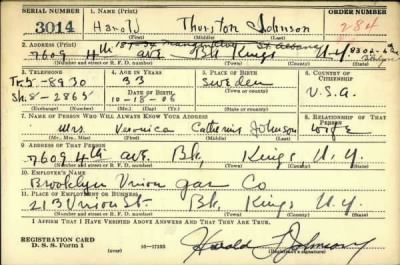 SERIAL NUMBER 1. NAME (Print) ORDER NUMBER
3014 Harold Thurston Johnson 284
(First) (Middle) (Last)
2. ADDRESS (Print)
7609 4th ave Bk Kings N.Y
(Number and street or R. F. D. number) (Town) (County) (State)
3. TELEPHONE 4. AGE IN YEARS 5. PLACE OF BIRTH 6. COUNTRY OF CITIZENSHIP
Tr. 5-8930 33 Sweden U.S.A.
DATE OF BIRTH
Sh. 8-2865 10-18-06
(Exchange) (Number) (Mo.) (Day) (Yr.) (State or country)
7. NAME OF PERSON WHO WILL ALWAYS KNOW YOUR ADDRESS 8. RELATIONSHIP OF THAT PERSON
Mrs. Veronica Catherine Johnson wife
(Mr., Mrs., Miss) (First) (Middle) (Last)
9. ADDRESS OF THAT PERSON
7609 4th ave. Bk. Kings, N.Y.
(Number and street or R. F. D. number) (Town) (County) (State)
10. EMPLOYER'S NAME
Brooklyn Union gas Co
11. PLACE OF EMPLOYMENT OR BUSINESS
213 Union St. Bk. Kings N.Y.
(Number and street or R. F. D. number) (Town) (County) (State)
I AFFIRM THAT I HAVE VERIFIED ABOVE ANSWERS AND THAT THEY ARE TRUE.
REGISTRATION CARD
D. S. S. Form 1 (over) Harold Johnson